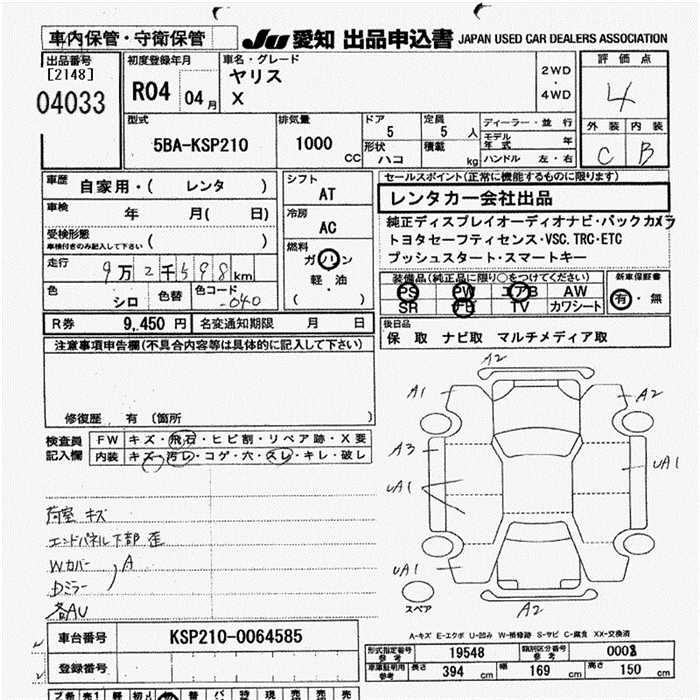 車内保管・守衛保管
JU 愛知 出品申込書 JAPAN USED CAR DEALERS ASSOCIATION
出品番号
[2148]
04033
初度登録年月
R04 04月
車名・グレード
ヤリス
X
2WD
・
4WD
評価点
4
外装 内装
C B
型式
5BA-KSP210
排気量
1000 CC
ドア
5
形状
ハコ
定員
5 人
積載
kg
ディーラー・並行
モデル年式 年
ハンドル 左・右
車歴 自家用・( レンタ )
車検 年 月( 日)
受検形態
車検付きのみ記入して下さい ( )
走行 9万2千598km
色 シロ 色替 色コード -040
シフト
AT
冷房
AC
燃料
ガソリン
軽・油
( )
セールスポイント(正常に機能するものに限ります)
レンタカー会社出品
純正ディスプレイオーディオナビ・バックカメラ
トヨタセーフティセンス・VSC.TRC・ETC
プッシュスタート・スマートキー
装備品(純正品に限り○をつけてください)
PS PW エアB AW
SR ナビ TV カワシート
新車保証書
有・無
R券 9,450 円 名変通知期限 月 日
後日品
保 取 ナビ取 マルチメディア取
注意事項申告欄(不具合内容等は具体的に記入して下さい)
修復歴 有 (箇所 )
検査員
記入欄
FW キズ・飛石・ヒビ割・リペア跡・X要
内装 キズ・汚レ・コゲ・穴・スレ・キレ・破レ
荷室 キズ
エンドパネル下部 歪
Wカバー
Dミラー
A
各AU
A2
A1
A2
A3
UA1
UA1
UA1
A2
スペア
A-キズ E-エクボ U-凹み W-補修跡 S-サビ C-腐食 XX-交換済
車台番号 KSP210-0064585
登録番号
形式指定番号
参考
19548
類別区分番号
参考
車庫証明用
参考
長さ 394 cm 幅 169 cm 高さ 150 cm